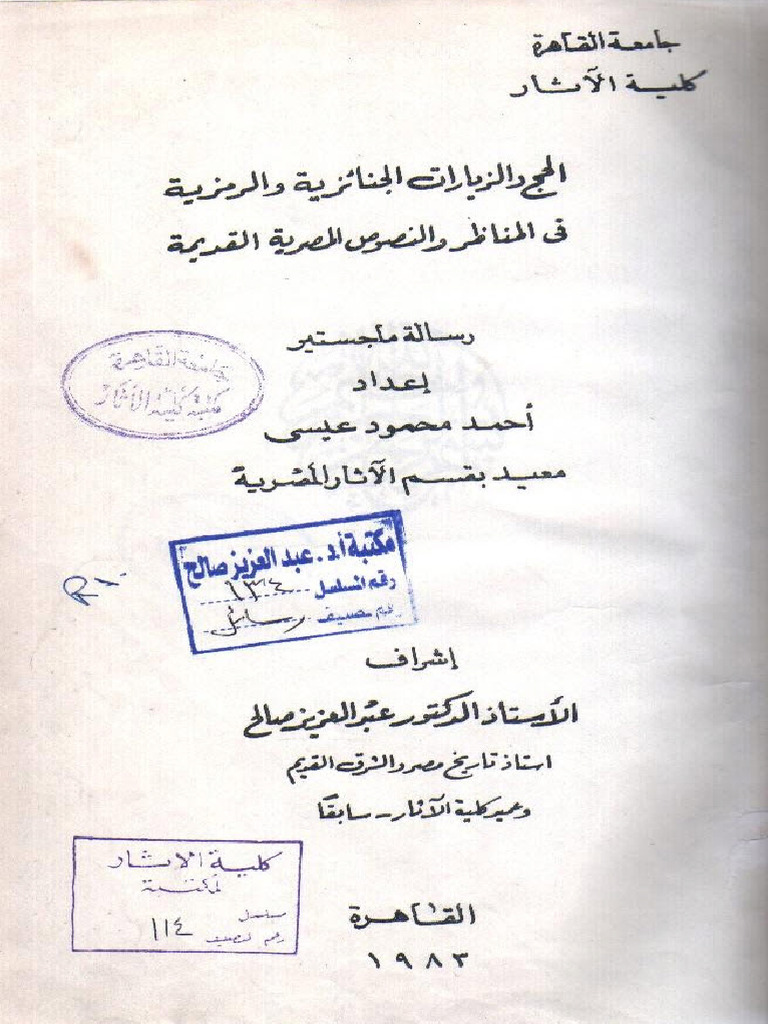 جامعة القاهرة
كلية الآثار
الحج والزيارات الجنائزية والرمزية
فى المناظر والنصوص المصرية القديمة
رسالة ماجستير
إعداد
أحمد محمود عيسى
معيد بقسم الآثار المصرية
جامعة القاهرة
مكتبة كلية الآثار
مكتبة أ.د. عبد العزيز صالح
رقم المسلسل ١٣٤
رقم تصنيف رسائل
إشراف
الأستاذ الدكتور عبد العزيز صالح
استاذ تاريخ مصر والشرق القديم
وعميد كلية الآثار - سابقًا
كلية الآثار
المكتبة
مسلسل
رقم التصنيف ١١٤
القاهرة
١٩٨٣